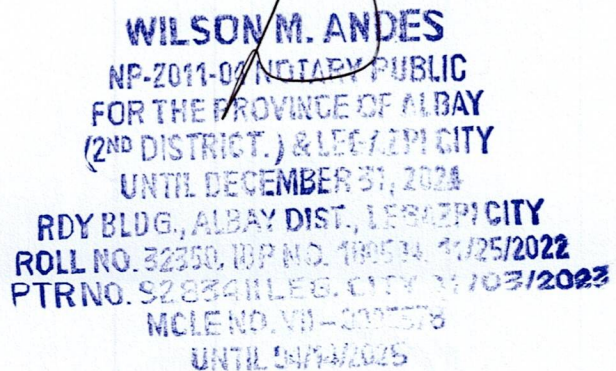 WILSON M. ANDES
NP-2011-04 NOTARY PUBLIC
FOR THE PROVINCE OF ALBAY
(2ND DISTRICT.) & LEGAZPI CITY
UNTIL DECEMBER 31, 2024
RDY BLDG., ALBAY DIST., LEGAZPI CITY
ROLL NO. 32350, IBP NO. 11/25/2022
PTR NO. 9283411 LEG. CITY 01/03/2023
MCLE NO. VII-
UNTIL